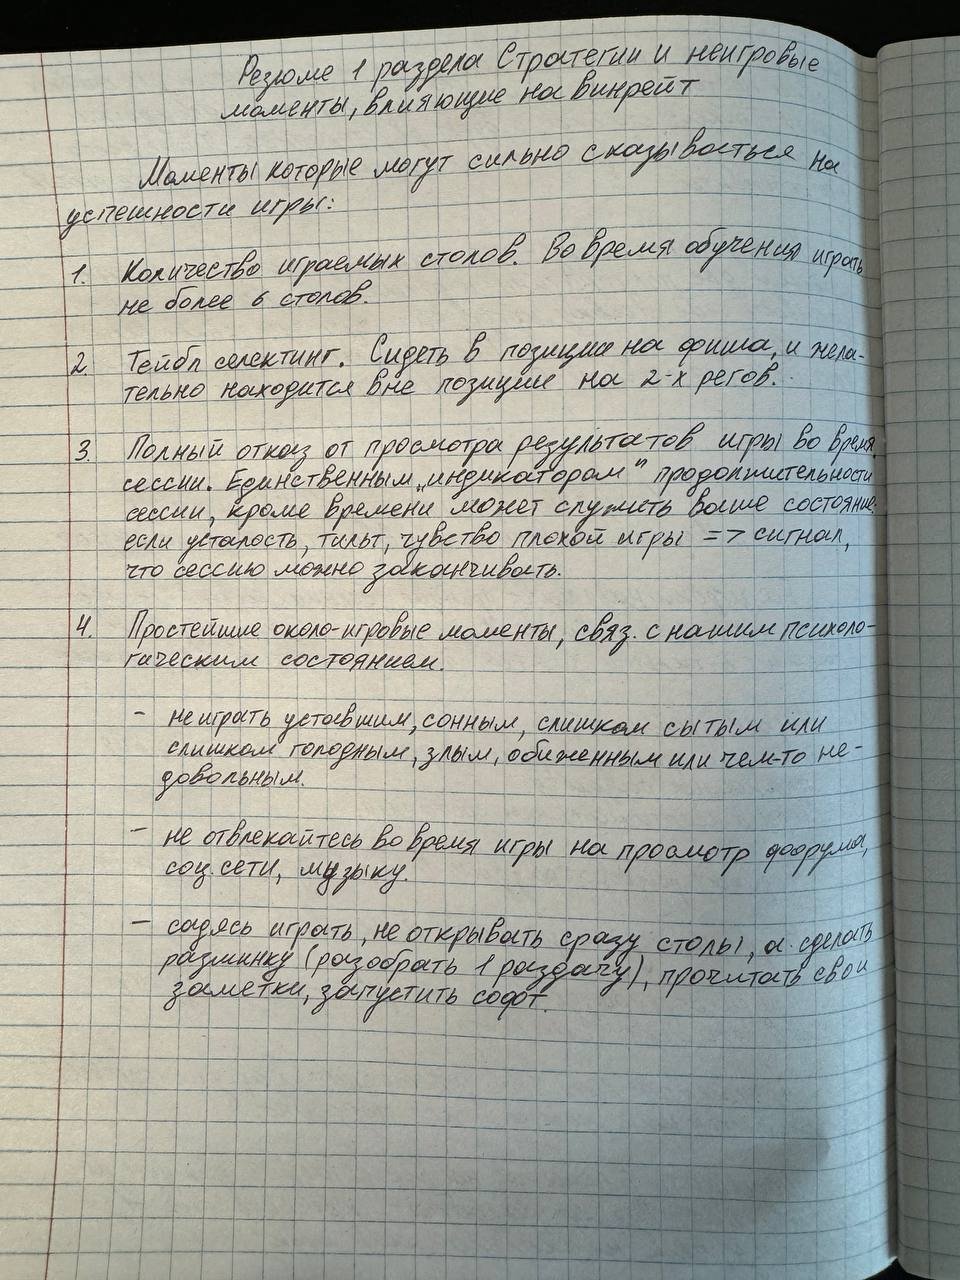 Резюме 1 раздела Стратегии и неигровые
моменты, влияющие на винрейт
Моменты которые могут сильно сказываеться на
успешности игры:
1. Количество играемых столов. Во время обучения играть
не более 6 столов.
2. Тейбл селектинг. Сидеть в позиции на фиша, и жела-
тельно находится вне позиции на 2-х регов.
3. Полный отказ от просмотра результатов игры во время
сессии. Единственным „индикатором" продолжительности
сессии, кроме времени может служить ваше состояние:
если усталость, тильт, чувство плохой игры => сигнал,
что сессию можно заканчивать.
4. Простейшие около-игровые моменты, связ. с нашим психоло-
гическим состоянием.
- не играть уставшим, сонным, слишком сытым или
слишком голодным, злым, обиженным или чем-то не-
довольным.
- не отвлекайтесь во время игры на просмотр форума,
соц. сети, музыку.
- садясь играть, не открывать сразу столы, а сделать
разминку (разобрать 1 раздачу), прочитать свои
заметки, запустить софт.